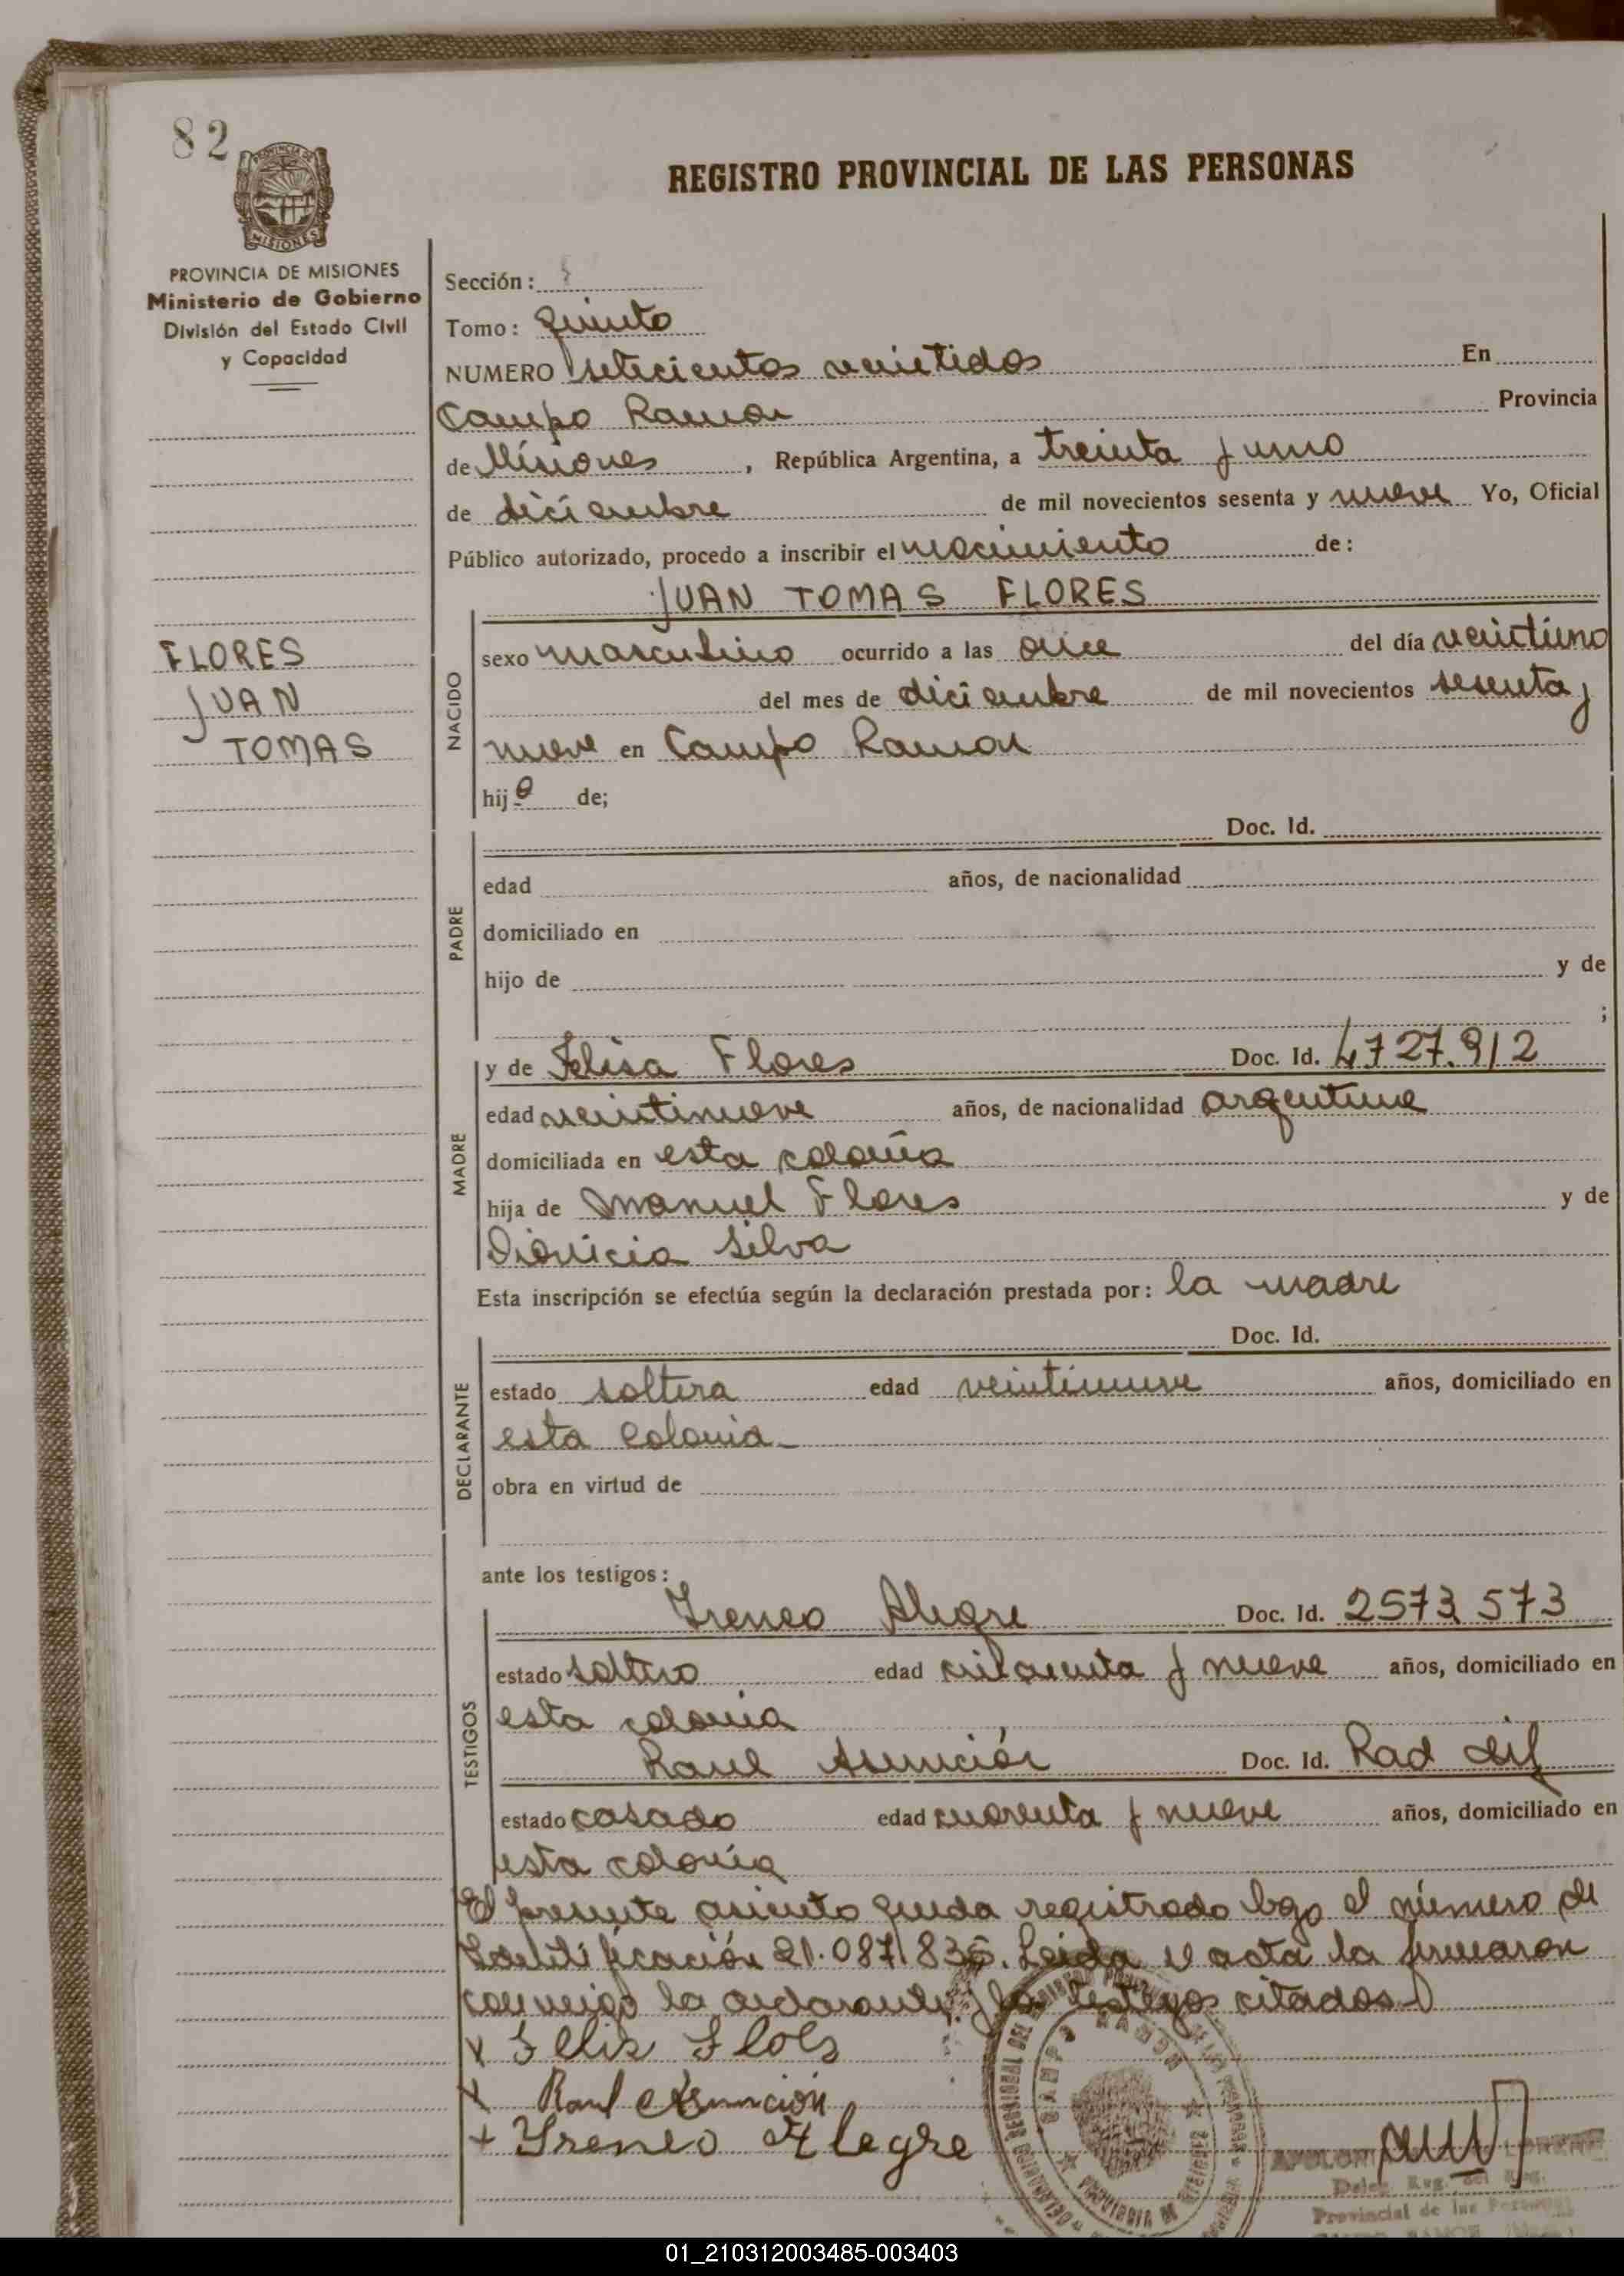 82
PROVINCIA DE MISIONES
Ministerio de Gobierno
División del Estado Civil
y Capacidad
FLORES
JUAN
TOMAS
REGISTRO PROVINCIAL DE LAS PERSONAS
Sección:
Tomo: quinto
NUMERO setecientos veintidos En
Campo Ramon Provincia
de Misiones, República Argentina, a treinta y uno
de diciembre de mil novecientos sesenta y nueve Yo, Oficial
Público autorizado, procedo a inscribir el nacimiento de:
JUAN TOMAS FLORES
NACIDO
sexo masculino ocurrido a las once del día veintiuno
del mes de diciembre de mil novecientos sesenta y
nueve en Campo Ramon
hijo de;
PADRE
Doc. Id.
edad años, de nacionalidad
domiciliado en
hijo de y de
;
MADRE
y de Felisa Flores Doc. Id. 4727.912
edad veintinueve años, de nacionalidad argentina
domiciliada en esta colonia
hija de Manuel Flores y de
Dionicia Silva
Esta inscripción se efectúa según la declaración prestada por: la madre
DECLARANTE
Doc. Id.
estado soltera edad veintinueve años, domiciliado en
esta colonia
obra en virtud de
ante los testigos:
TESTIGOS
Ireneo Alegre Doc. Id. 2573573
estado soltero edad cincuenta y nueve años, domiciliado en
esta colonia
Raul Asunción Doc. Id. Rad
estado casado edad cuarenta y nueve años, domiciliado en
esta colonia
El presente asiento queda registrado bajo el número de
Identificación 21.087.836. Leida el acta la firmaron
conmigo la declarante y los testigos citados
x Felis Floes
x Raul Asunción
+ Yreneo Alegre
CAMPO RAMON
Provincial de las Personas
01_210312003485-003403